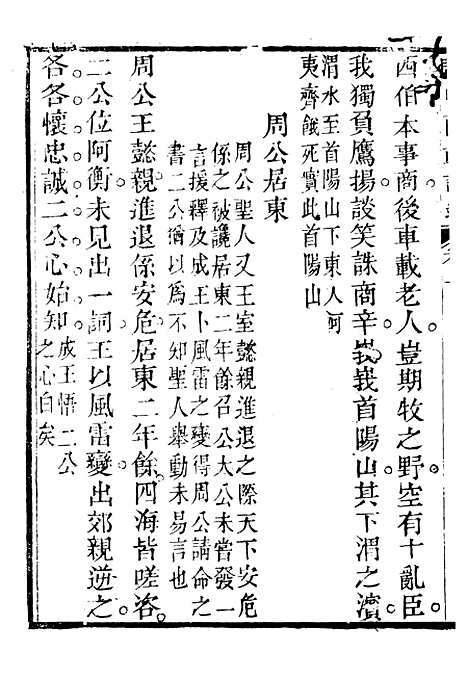 西伯本事商後車載老人豈期牧之野空有十亂臣
我獨負鷹揚談笑誅商辛峩峩首陽山其下渭之濱
渭水至首陽山下東入河
夷齊餓死實此首陽山
周公居東
周公聖人又王室懿親進退之際天下安危
係之被讒居東二年餘召公太公未嘗發一
言援釋及成王卜風雷之變得周公請命之
書二公猶以爲不知聖人舉動未易言也
周公王懿親進退係安危居東二年餘四海皆嗟咨
二公位阿衡未見出一詞王以風雷變出郊親逆之
各各懷忠誠二公心始知成王悟二公
之心白矣